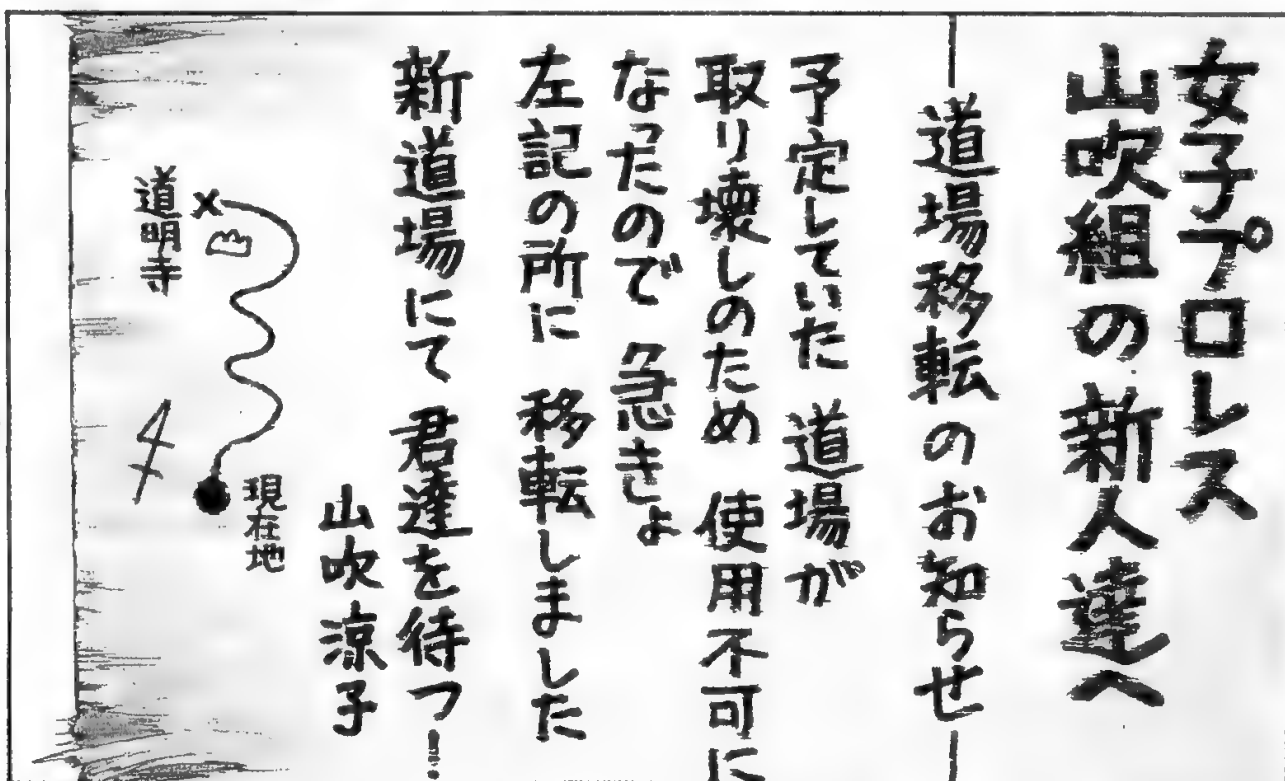 女子プロレス
山吹組の新人達へ
―道場移転のお知らせ―
予定していた 道場が
取り壊しのため 使用不可に
なったので 急きょ
左記の所に 移転しました
新道場にて 君達を待つー!
山吹涼子
現在地
道明寺